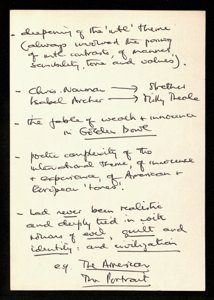 - deepening of the 'intl' theme
(always involved the powers
of intl contrasts, of manner,
sensibility, tone and values).
- Chris. Newman → Strether
Isabel Archer → Milly Theale
- the fable of wealth & innocence
in Golden Bowl
- poetic complexity of the
international theme, of innocence
& experience, of American &
European 'tones'.
- had never been realistic
and deeply tied in with
notions of evil, guilt and
identity; and civilization
eg The American
The Portrait